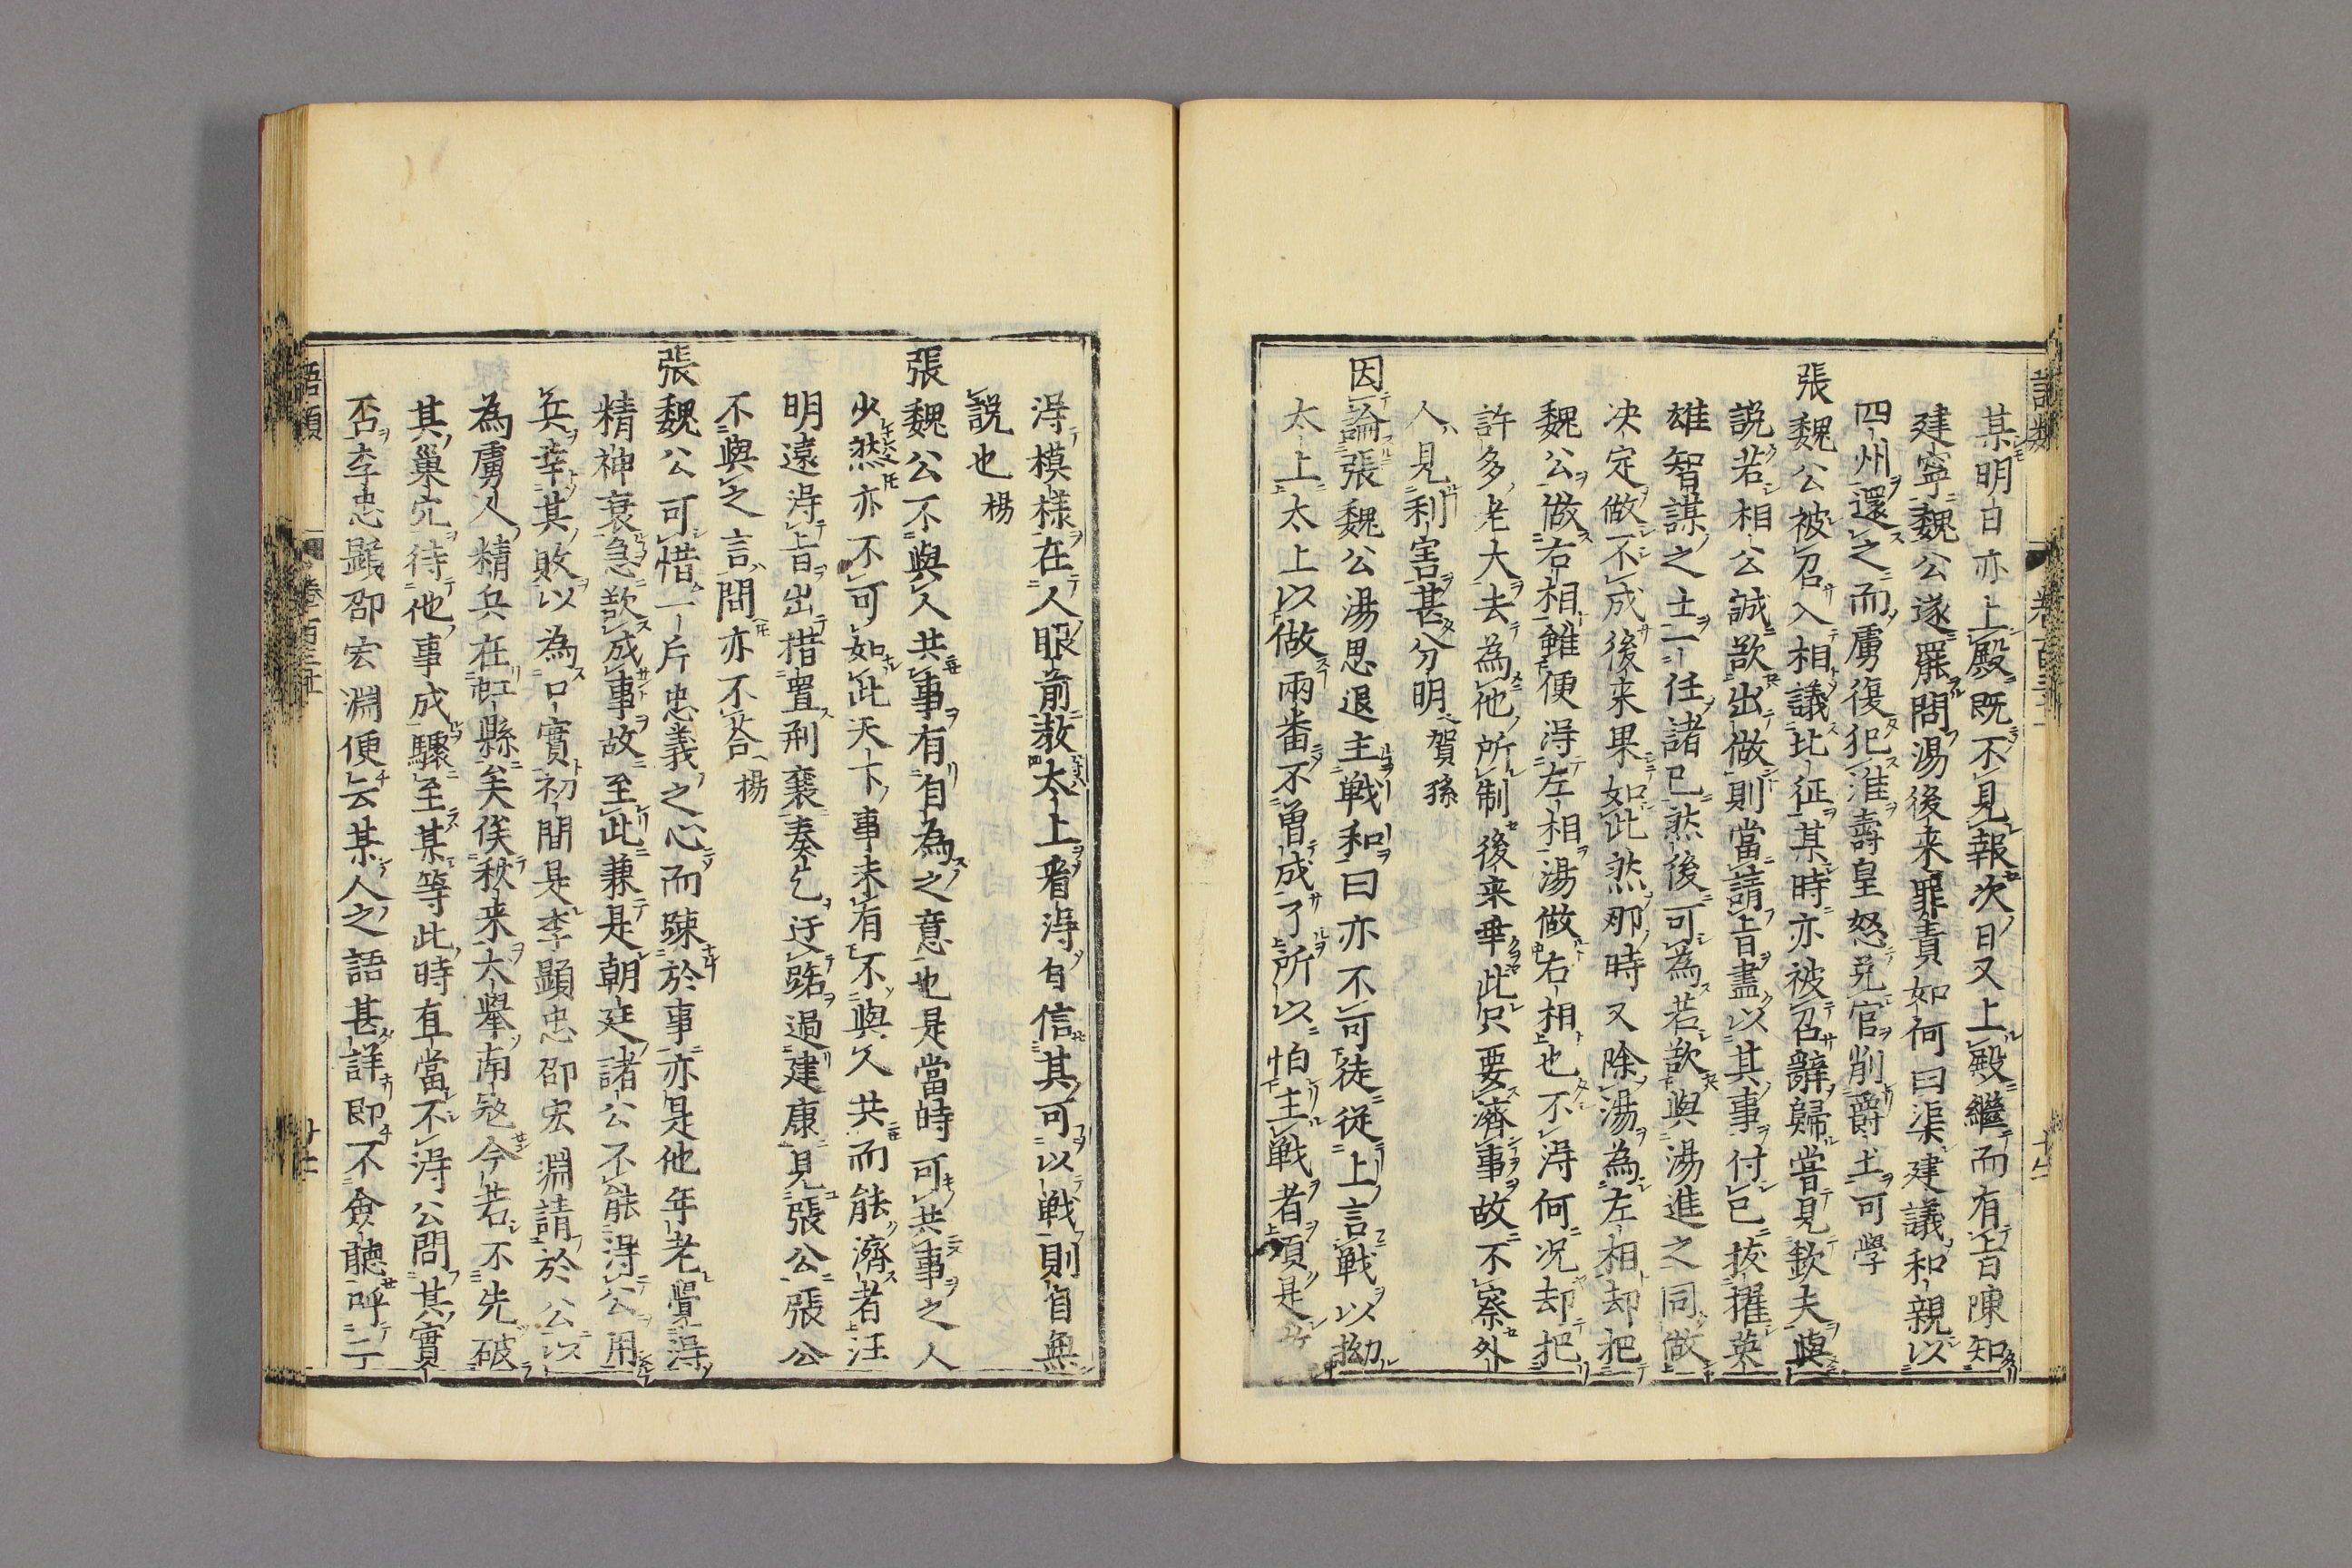 某明日亦上殿既不見報次日又上殿繼而有㫖陳知
建寜魏公遂罷問湯後来罪責如何曰渠建議和親以
四州還之而虜復犯淮壽皇怒免官削爵土可學
張魏公被召入相議北征某時亦被召辭歸嘗見欽夫與
説若相公誠欲出做則當請㫖盡以其事付已拔擢英
雄智謀之士一任諸已然後可為若欲與湯進之同做
决定做不成後来果如此然那時又除湯為左相却把
魏公做右相雖便得左相湯做右相也不得何况却把
許多老大去為他所制後来乖此只要濟事故不察外
人見利害甚分明賀孫
因論張魏公湯思退主戦和曰亦不可徒從上言戦以拗
太上太上以做兩畨不曾成了所以怕主戦者須是
得模様在人眼前教太上看得自信其可以戦則自無
説也楊
張魏公不與人共事有自為之意也是當時可共事之人
少然亦不可如此天下事未有不與人共而能濟者汪
明遠得㫖出措置荆襄奏乞迂路過建康見張公張公
不與之言問亦不荅楊
張魏公可惜一片忠義之心而踈於事亦是他年老覺得
精神衰急欲成事故至此兼是朝廷諸公不能得公用
兵幸其敗以為口實初間是李顯忠邵宏淵請於公以
為虜人精兵在虹縣矣俟秋来大舉南冦今若不先破
其巢穴待他事成驟至某等此時直當不得公問其實
否李忠顯邵宏淵便云某人之語甚詳即不會聽呼二
語類
卷百三十一